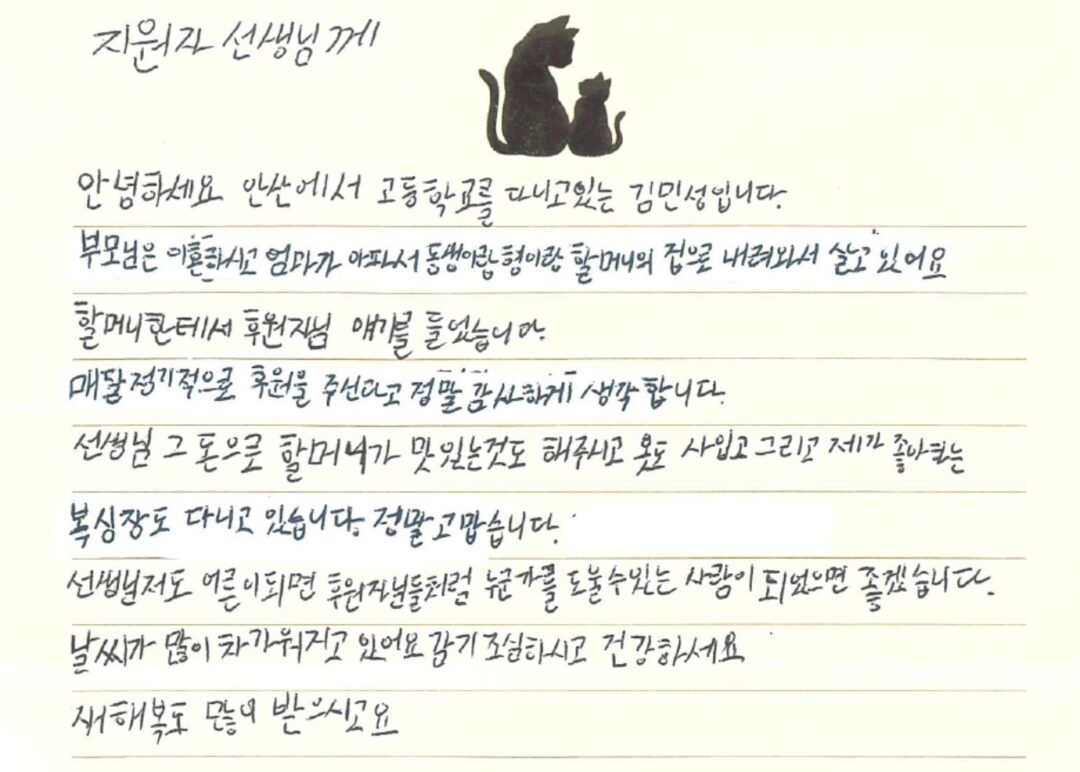 지원자 선생님께
안녕하세요 안산에서 고등학교를 다니고있는 김민성입니다.
부모님은 이혼하시고 엄마가 아파서 동생이랑 형이랑 할머니의 집으로 내려와서 살고 있어요
할머니한테서 후원자님 얘기를 들었습니다.
매달정기적으로 후원을 주신다고 정말 감사하게 생각합니다.
선생님 그 돈으로 할머니가 맛있는것도 해주시고 옷도 사입고 그리고 제가 좋아하는
복싱장도 다니고 있습니다. 정말고맙습니다.
선생님저도 어른이되면 후원자분들처럼 누군가를 도울수있는 사람이 되었으면 좋겠습니다.
날씨가 많이 차가워지고 있어요 감기 조심하시고 건강하세요
새해복도 많이 받으시고요